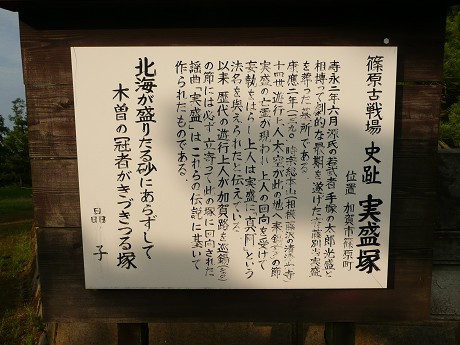 篠原古戦場 史趾 実盛塚
位置 加賀市篠原町
寿永二年六月源氏の若武者手塚の太郎光盛と
相搏って劇的な最期を遂げた斎藤別当実盛
を葬った場所である。
康応二年(一三九〇)時宗総本山(相模藤沢の清浄光寺)
十四世遊行上人太空が此の地へ来錫の節
実盛の亡霊が現われ上人の回向を受けて
妄執をはらし上人は実盛に真阿という
法名を与えられたと伝えている
以来歴代の遊行上人が加賀路を巡錫
の節には必ず立寄って此の塚に回向された
謡曲「実盛」はこれらの伝説に基いて
作られたものである。
北海が盛りたる砂にあらずして
木曽の冠者がきづきつる塚
晶子